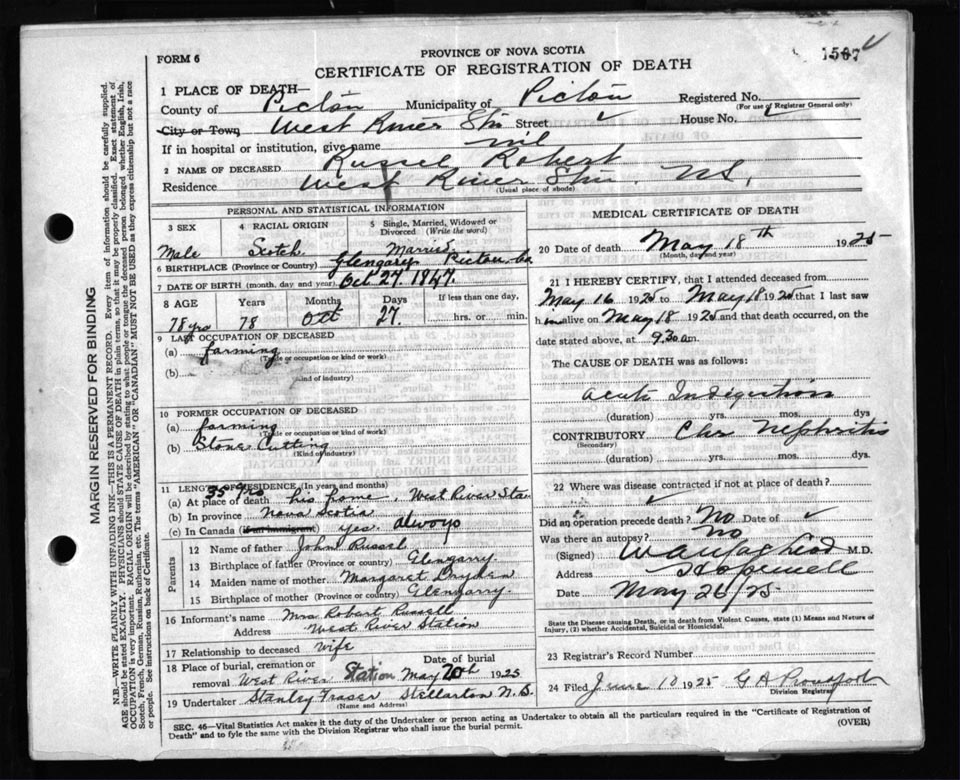 PROVINCE OF NOVA SCOTIA
FORM 6
1507
CERTIFICATE OF REGISTRATION OF DEATH
1 PLACE OF DEATH—
County of Pictou Municipality of Pictou Registered No.
(For use of Registrar General only)
City or Town West River Stn Street House No.
If in hospital or institution, give name nil
2 NAME OF DECEASED Russel Robert
Residence West River Stn. N.S.
(Usual place of abode)
PERSONAL AND STATISTICAL INFORMATION
3 SEX 4 RACIAL ORIGIN 5 Single, Married, Widowed or Divorced (Write the word)
Male Scotch Married
6 BIRTHPLACE (Province or Country) Glengary Pictou Co
7 DATE OF BIRTH (month, day and year) Oct 27 1847.
8 AGE Years Months Days If less than one day,
78 yrs 78 Oct 27. hrs. or min.
9 LAST OCCUPATION OF DECEASED
(a) farming
(Trade or occupation or kind of work)
(b)
(Kind of industry)
10 FORMER OCCUPATION OF DECEASED
(a) farming
(Trade or occupation or kind of work)
(b) Stone Cutting
(Kind of industry)
11 LENGTH OF RESIDENCE (In years and months)
(a) At place of death 35 yrs his home, West River Sta
(b) In province Nova Scotia
(c) In Canada (if an immigrant) yes. always
Parents
12 Name of father John Russel
13 Birthplace of father (Province or country) Glengarry.
14 Maiden name of mother Margaret Dryden
15 Birthplace of mother (Province or country) Glengarry.
16 Informant's name Mrs Robert Russell
Address West River Station
17 Relationship to deceased Wife
18 Place of burial, cremation or removal West River Station Date of burial May 20th 1925
19 Undertaker Stanley Fraser Stellarton N.S.
(Name and Address)
MEDICAL CERTIFICATE OF DEATH
20 Date of death May 18th 1925
(Month, day and year)
21 I HEREBY CERTIFY, that I attended deceased from
May 16 1925 to May 18 1925 that I last saw
him alive on May 18 1925 and that death occurred, on the
date stated above, at 9.30 a.m.
The CAUSE OF DEATH was as follows:
acute Indigestion
(duration) yrs. mos. dys
CONTRIBUTORY Chr Nephritis
(Secondary)
(duration) yrs. mos. dys.
22 Where was disease contracted if not at place of death?
Did an operation precede death? No Date of
Was there an autopsy? No
(Signed) M.D.
Address Hopewell
Date May 26/25
State the Disease causing Death, or in death from Violent Causes, state (1) Means and Nature of
Injury, (2) whether Accidental, Suicidal or Homicidal.
23 Registrar's Record Number
24 Filed June 10 1925 G A Proudfoot
Division Registrar
SEC. 46—Vital Statistics Act makes it the duty of the Undertaker or person acting as Undertaker to obtain all the particulars required in the "Certificate of Registration of
Death" and to fyle the same with the Division Registrar who shall issue the burial permit. (OVER)
MARGIN RESERVED FOR BINDING
N.B.—WRITE PLAINLY WITH UNFADING INK—THIS IS A PERMANENT RECORD. Every item of information should be carefully supplied.
AGE should be stated EXACTLY. PHYSICIANS should STATE CAUSE OF DEATH in plain terms, so that it may be properly classified. Exact statement of
OCCUPATION is very important. RACIAL ORIGIN will be described by stating to what people or tongue the deceased person belonged whether English, Irish,
Scotch, French, German, Russian, Ruthenian, etc. The terms "AMERICAN" OR "CANADIAN" MUST NOT BE USED as they express citizenship but not a race
or people. See instructions on back of Certificate.